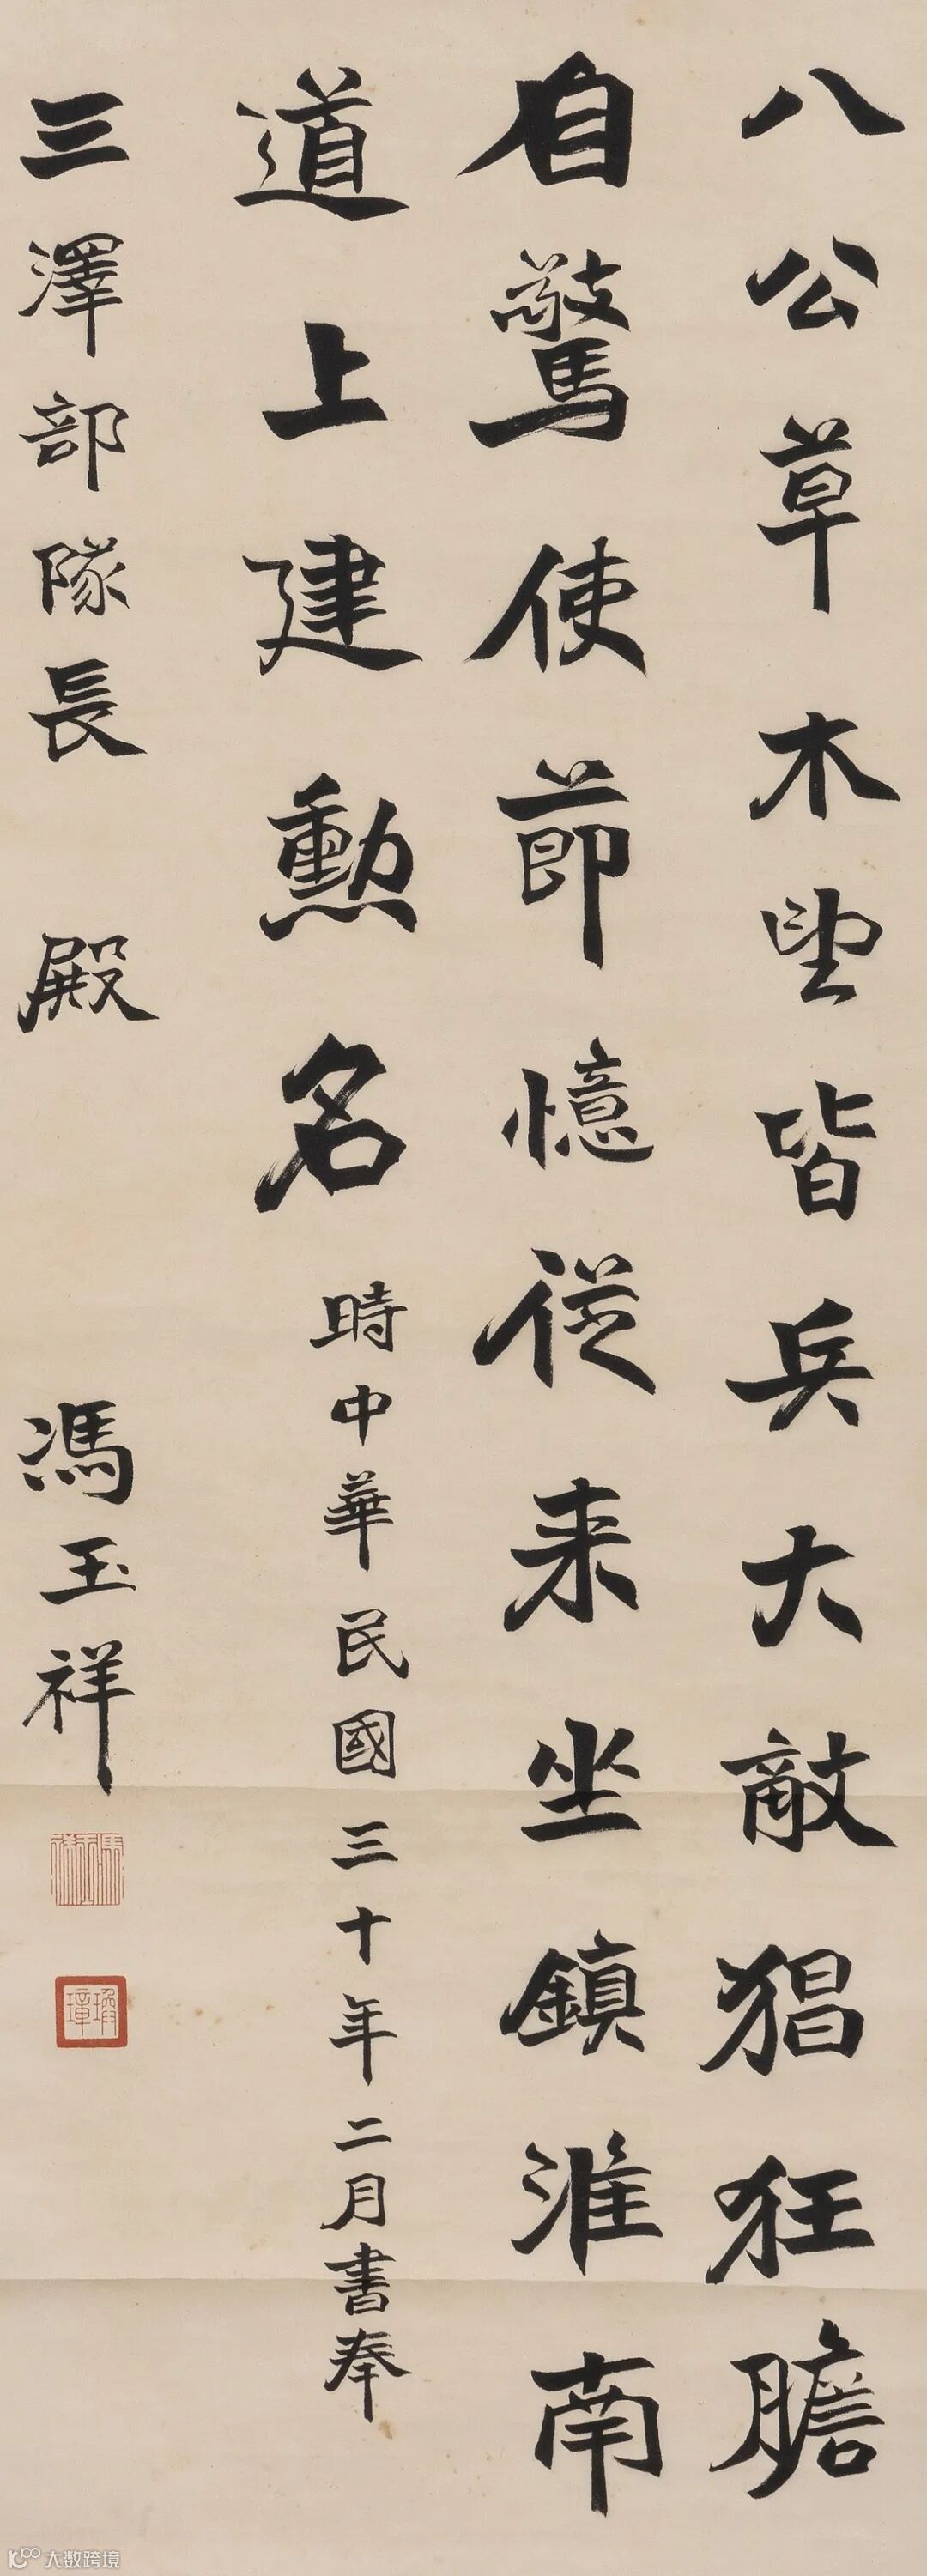 八公草木望皆兵大敵猖狂膽
自驚使節憶從来坐鎮淮南
道上建勲名時中華民國三十年二月書奉
三澤部隊長 殿 馮玉祥
馮玉祥
大数跨境